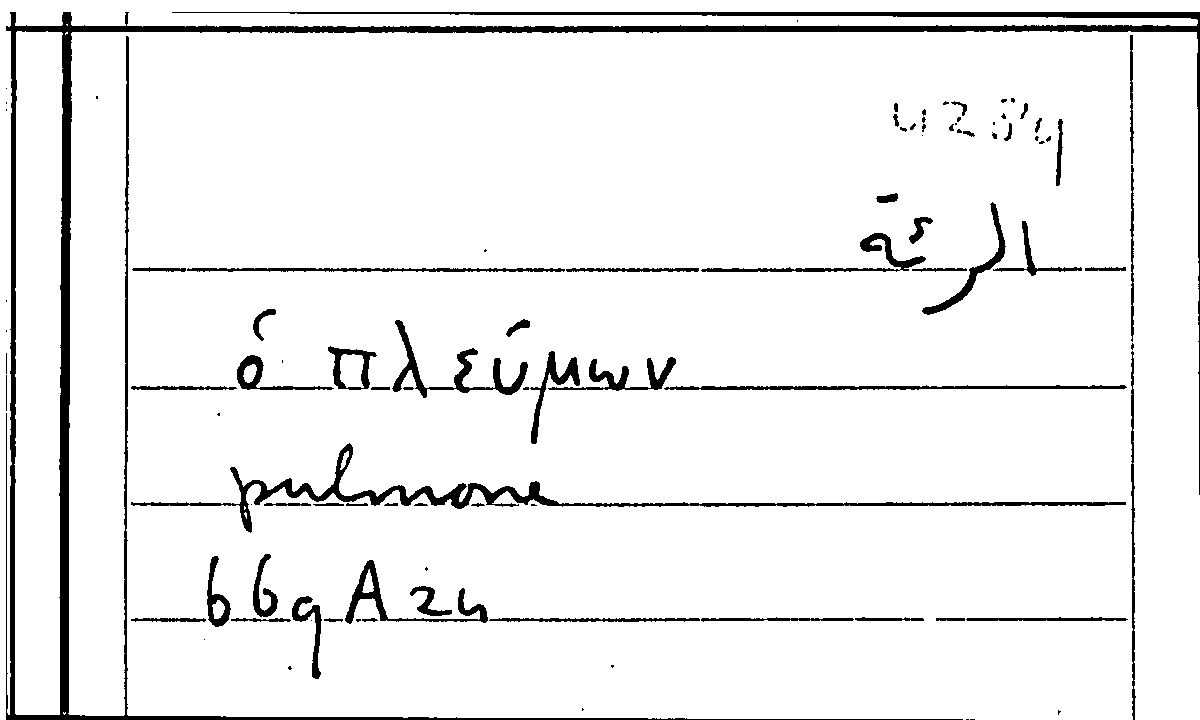 الرئة
ὁ πλεύμων
pulmone
669 A 24